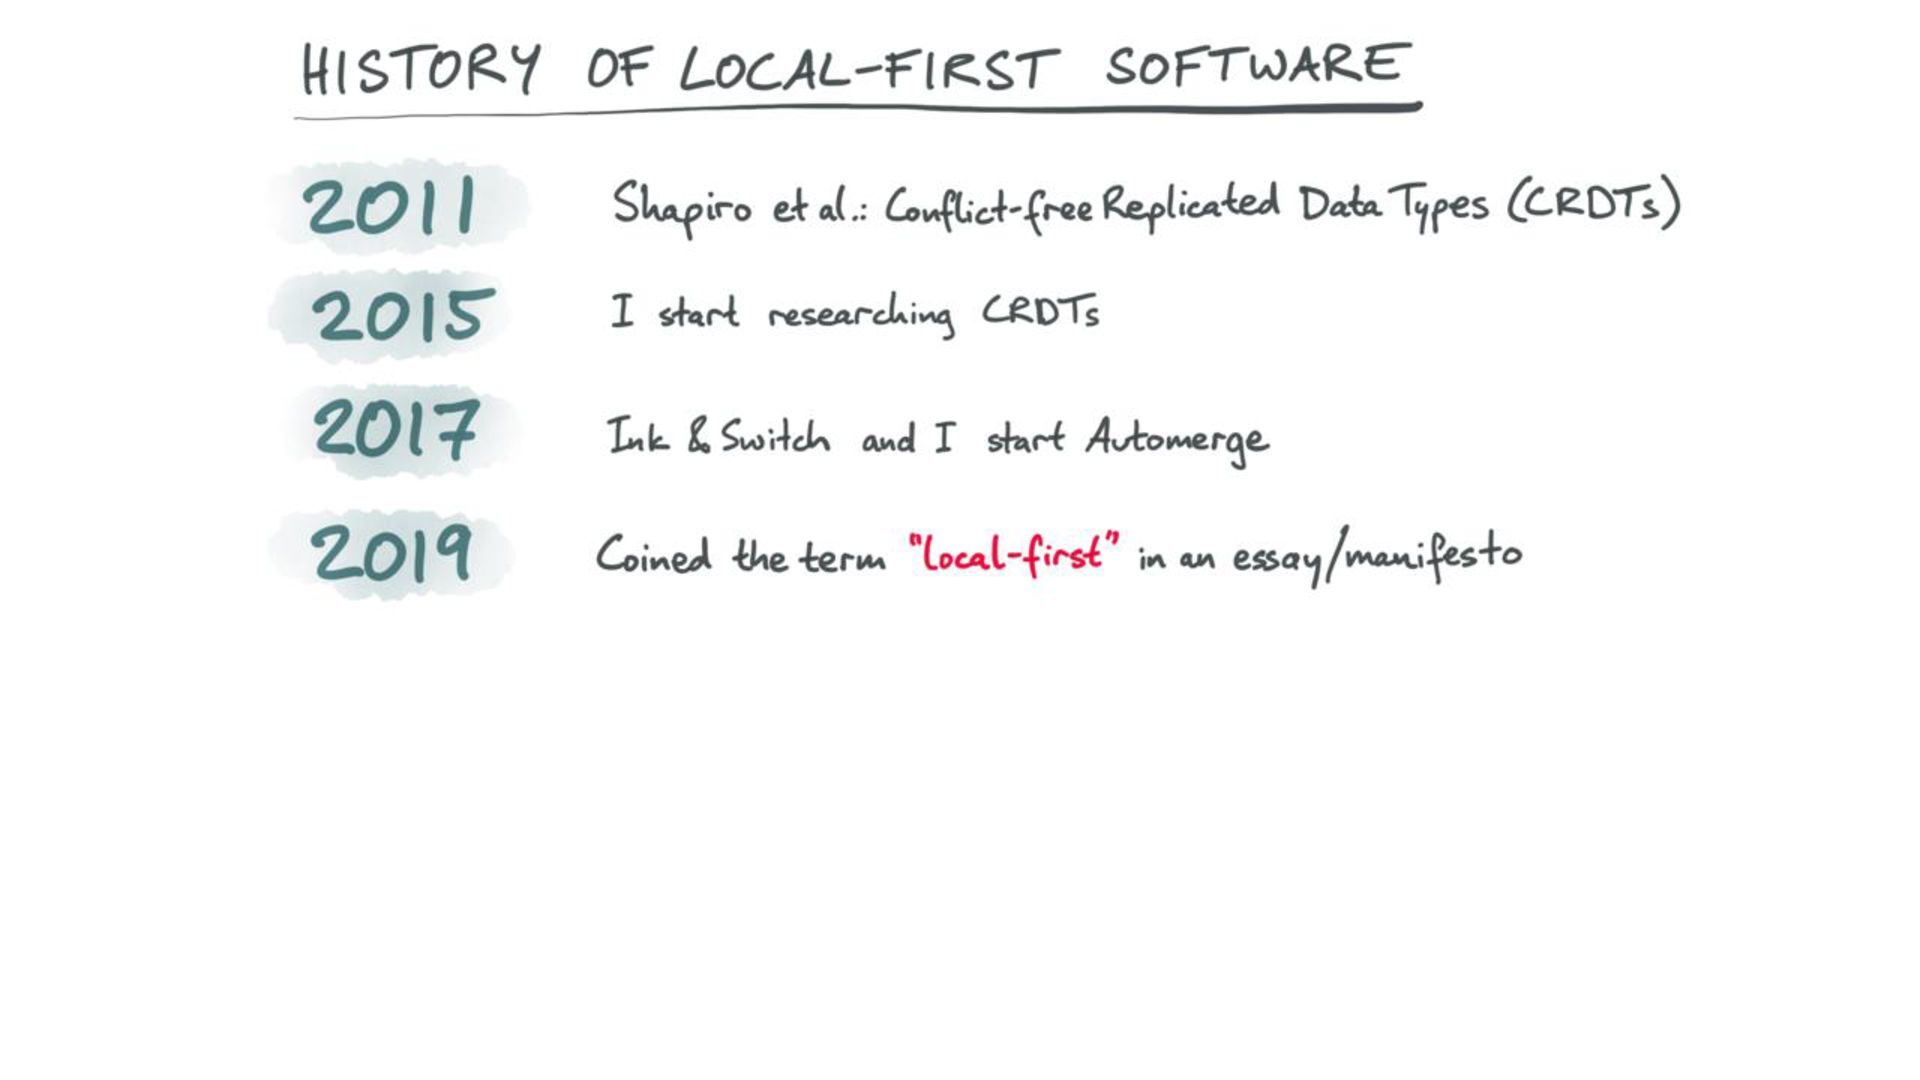 HISTORY OF LOCAL-FIRST SOFTWARE
2011 Shapiro et al.: Conflict-free Replicated Data Types (CRDTs)
2015 I start researching CRDTs
2017 Ink & Switch and I start Automerge
2019 Coined the term "local-first" in an essay/manifesto